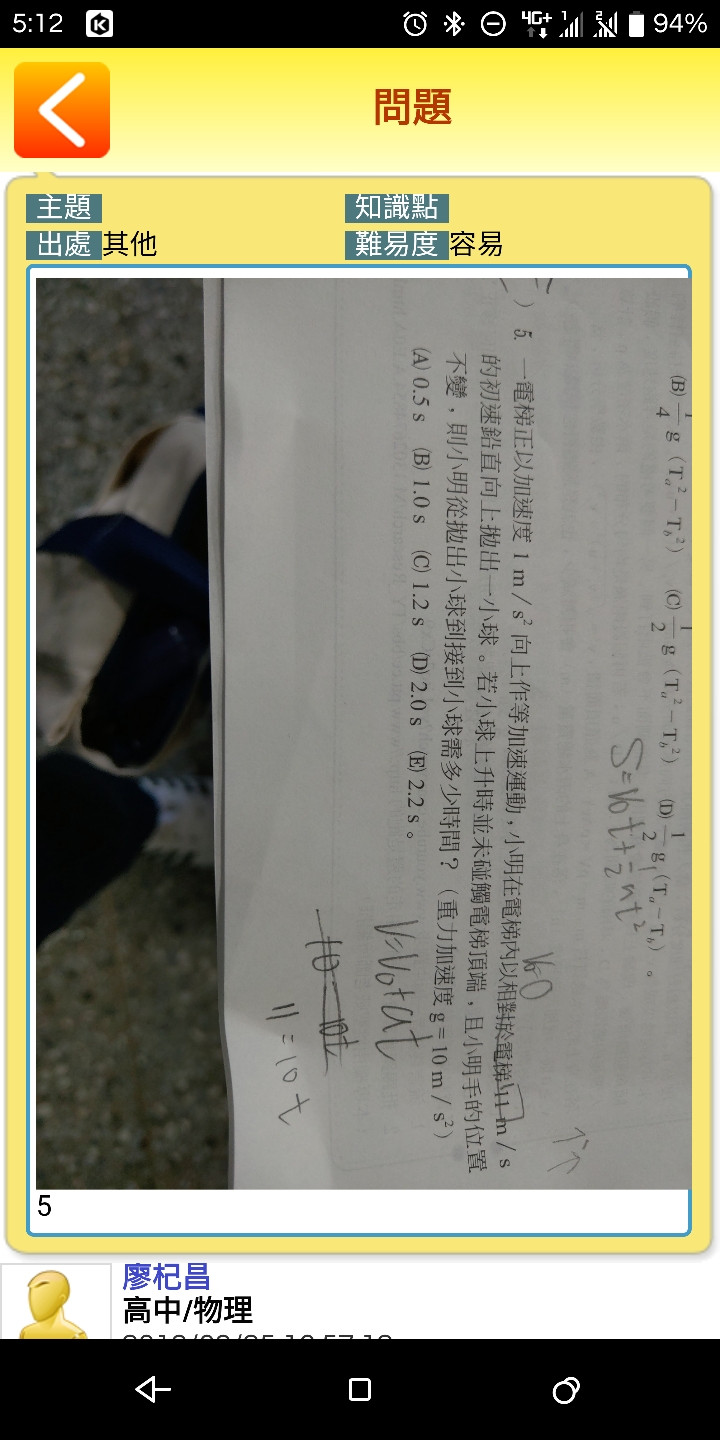 5:12
4G+
1
2
94%
問題
主題
知識點
出處 其他
難易度 容易
(B) 1/4 g（Tₐ²－T_b²） (C) 1/2 g（Tₐ²－T_b²） (D) 1/2 g（Tₐ－T_b）。
S=V₀t+1/2at²
) 5. 一電梯正以加速度 1 m／s² 向上作等加速運動，小明在電梯內以相對於電梯 11 m／s
的初速鉛直向上拋出一小球。若小球上升時並未碰觸電梯頂端，且小明手的位置
不變，則小明從拋出小球到接到小球需多少時間？（重力加速度 g＝10 m／s²）
(A) 0.5 s (B) 1.0 s (C) 1.2 s (D) 2.0 s (E) 2.2 s。
V=V₀+at
11=10t
5
廖杞昌
高中/物理